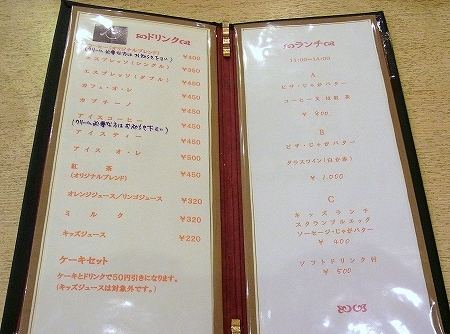 ドリンク
(オリジナルブレンド) ¥400
(クリーム必要な方はお知らせ下さい)
エスプレッソ(シングル) ¥350
エスプレッソ(ダブル) ¥450
カフェ・オ・レ ¥450
カプチーノ ¥450
アイスコーヒー ¥450
(クリーム必要な方はお知らせ下さい)
アイスティー ¥450
アイス オ・レ ¥500
紅 茶
(オリジナルブレンド) ¥450
オレンジジュース/リンゴジュース ¥320
ミ ル ク ¥320
キッズジュース ¥220
ケーキセット
ケーキとドリンクで50円引きになります。
(キッズジュースは対象外です。)
ランチ
11:00~14:00
A
ピザ・じゃがバター
コーヒー又は紅茶
¥ 800
B
ピザ・じゃがバター
グラスワイン(白か赤)
¥ 1,000
C
キッズランチ
スクランブルエッグ
ソーセージ・じゃがバター
¥ 400
ソフトドリンク付
¥ 500